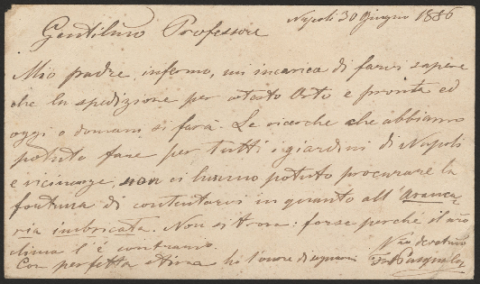 Napoli 30 Giugno 1886
Gentilmo Professore
Mio padre, infermo, mi incarica di farvi sapere
che la spedizione per Orto è pronta ed
oggi o domani si farà. Le ricerche che abbiamo
potuto fare per tutti i giardini di Napoli
e vicinanze, non ci hanno potuto procurare la
fortuna di contentarvi in quanto all'Arauca-
ria imbricata. Non si trova: forse perchè il mio
clima l'è contrario.
Con perfetta stima ho l'onore di
Pasquale